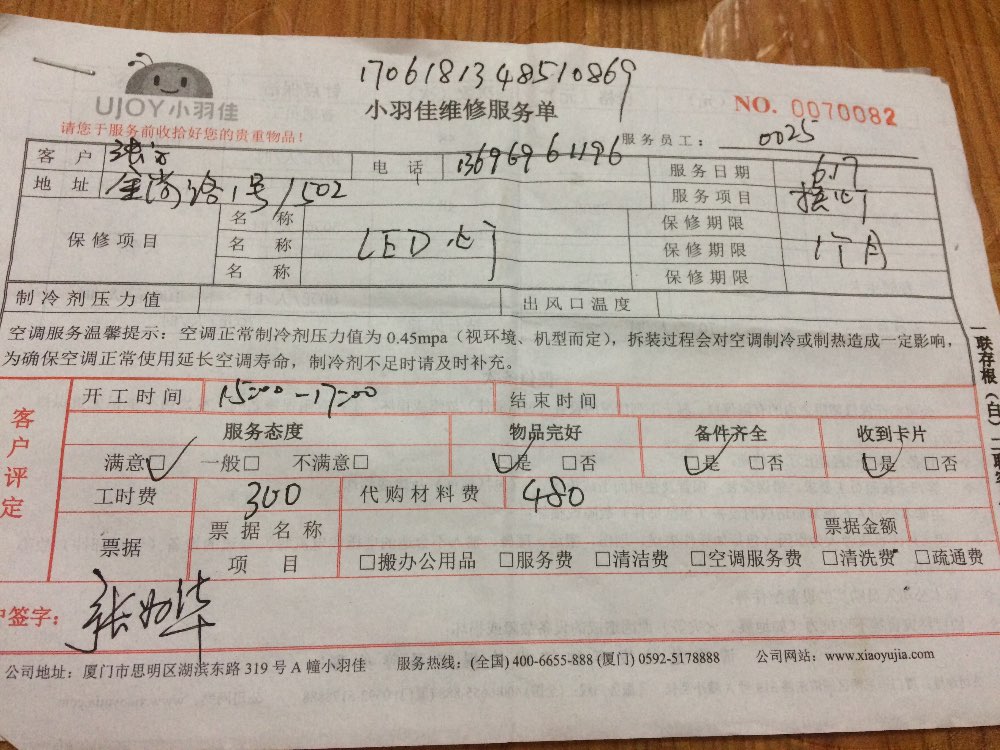 1706181348510869
UJOY小羽佳
小羽佳维修服务单
NO. 0070082
请您于服务前收拾好您的贵重物品！
服务员工： 0025
客 户 电 话 13696961196 服务日期 6.17
地 址 金尚路1号/1502 服务项目 换灯
保修项目 名 称 保修期限
名 称 LED灯 保修期限 1个月
名 称 保修期限
制冷剂压力值 出风口温度
空调服务温馨提示：空调正常制冷剂压力值为 0.45mpa（视环境、机型而定），拆装过程会对空调制冷或制热造成一定影响，
为确保空调正常使用延长空调寿命，制冷剂不足时请及时补充。
客户评定
开工时间 15:00-17:00 结束时间
服务态度 物品完好 备件齐全 收到卡片
满意□ 一般□ 不满意□ □是 □否 □是 □否 □是 □否
工时费 300 代购材料费 480
票据 票据名称 票据金额
项 目 □搬办公用品 □服务费 □清洁费 □空调服务费 □清洗费 □疏通费
户签字：
公司地址：厦门市思明区湖滨东路 319 号 A 幢小羽佳 服务热线：(全国) 400-6655-888 (厦门) 0592-5178888 公司网站：www.xiaoyujia.com
一联存根（白）二联